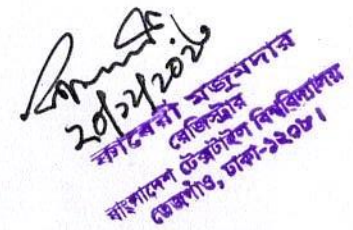 ২০/১২/২০২০
কাবেরী মজুমদার
রেজিস্ট্রার
বাংলাদেশ টেক্সটাইল বিশ্ববিদ্যালয়
তেজগাঁও, ঢাকা-১২০৮।